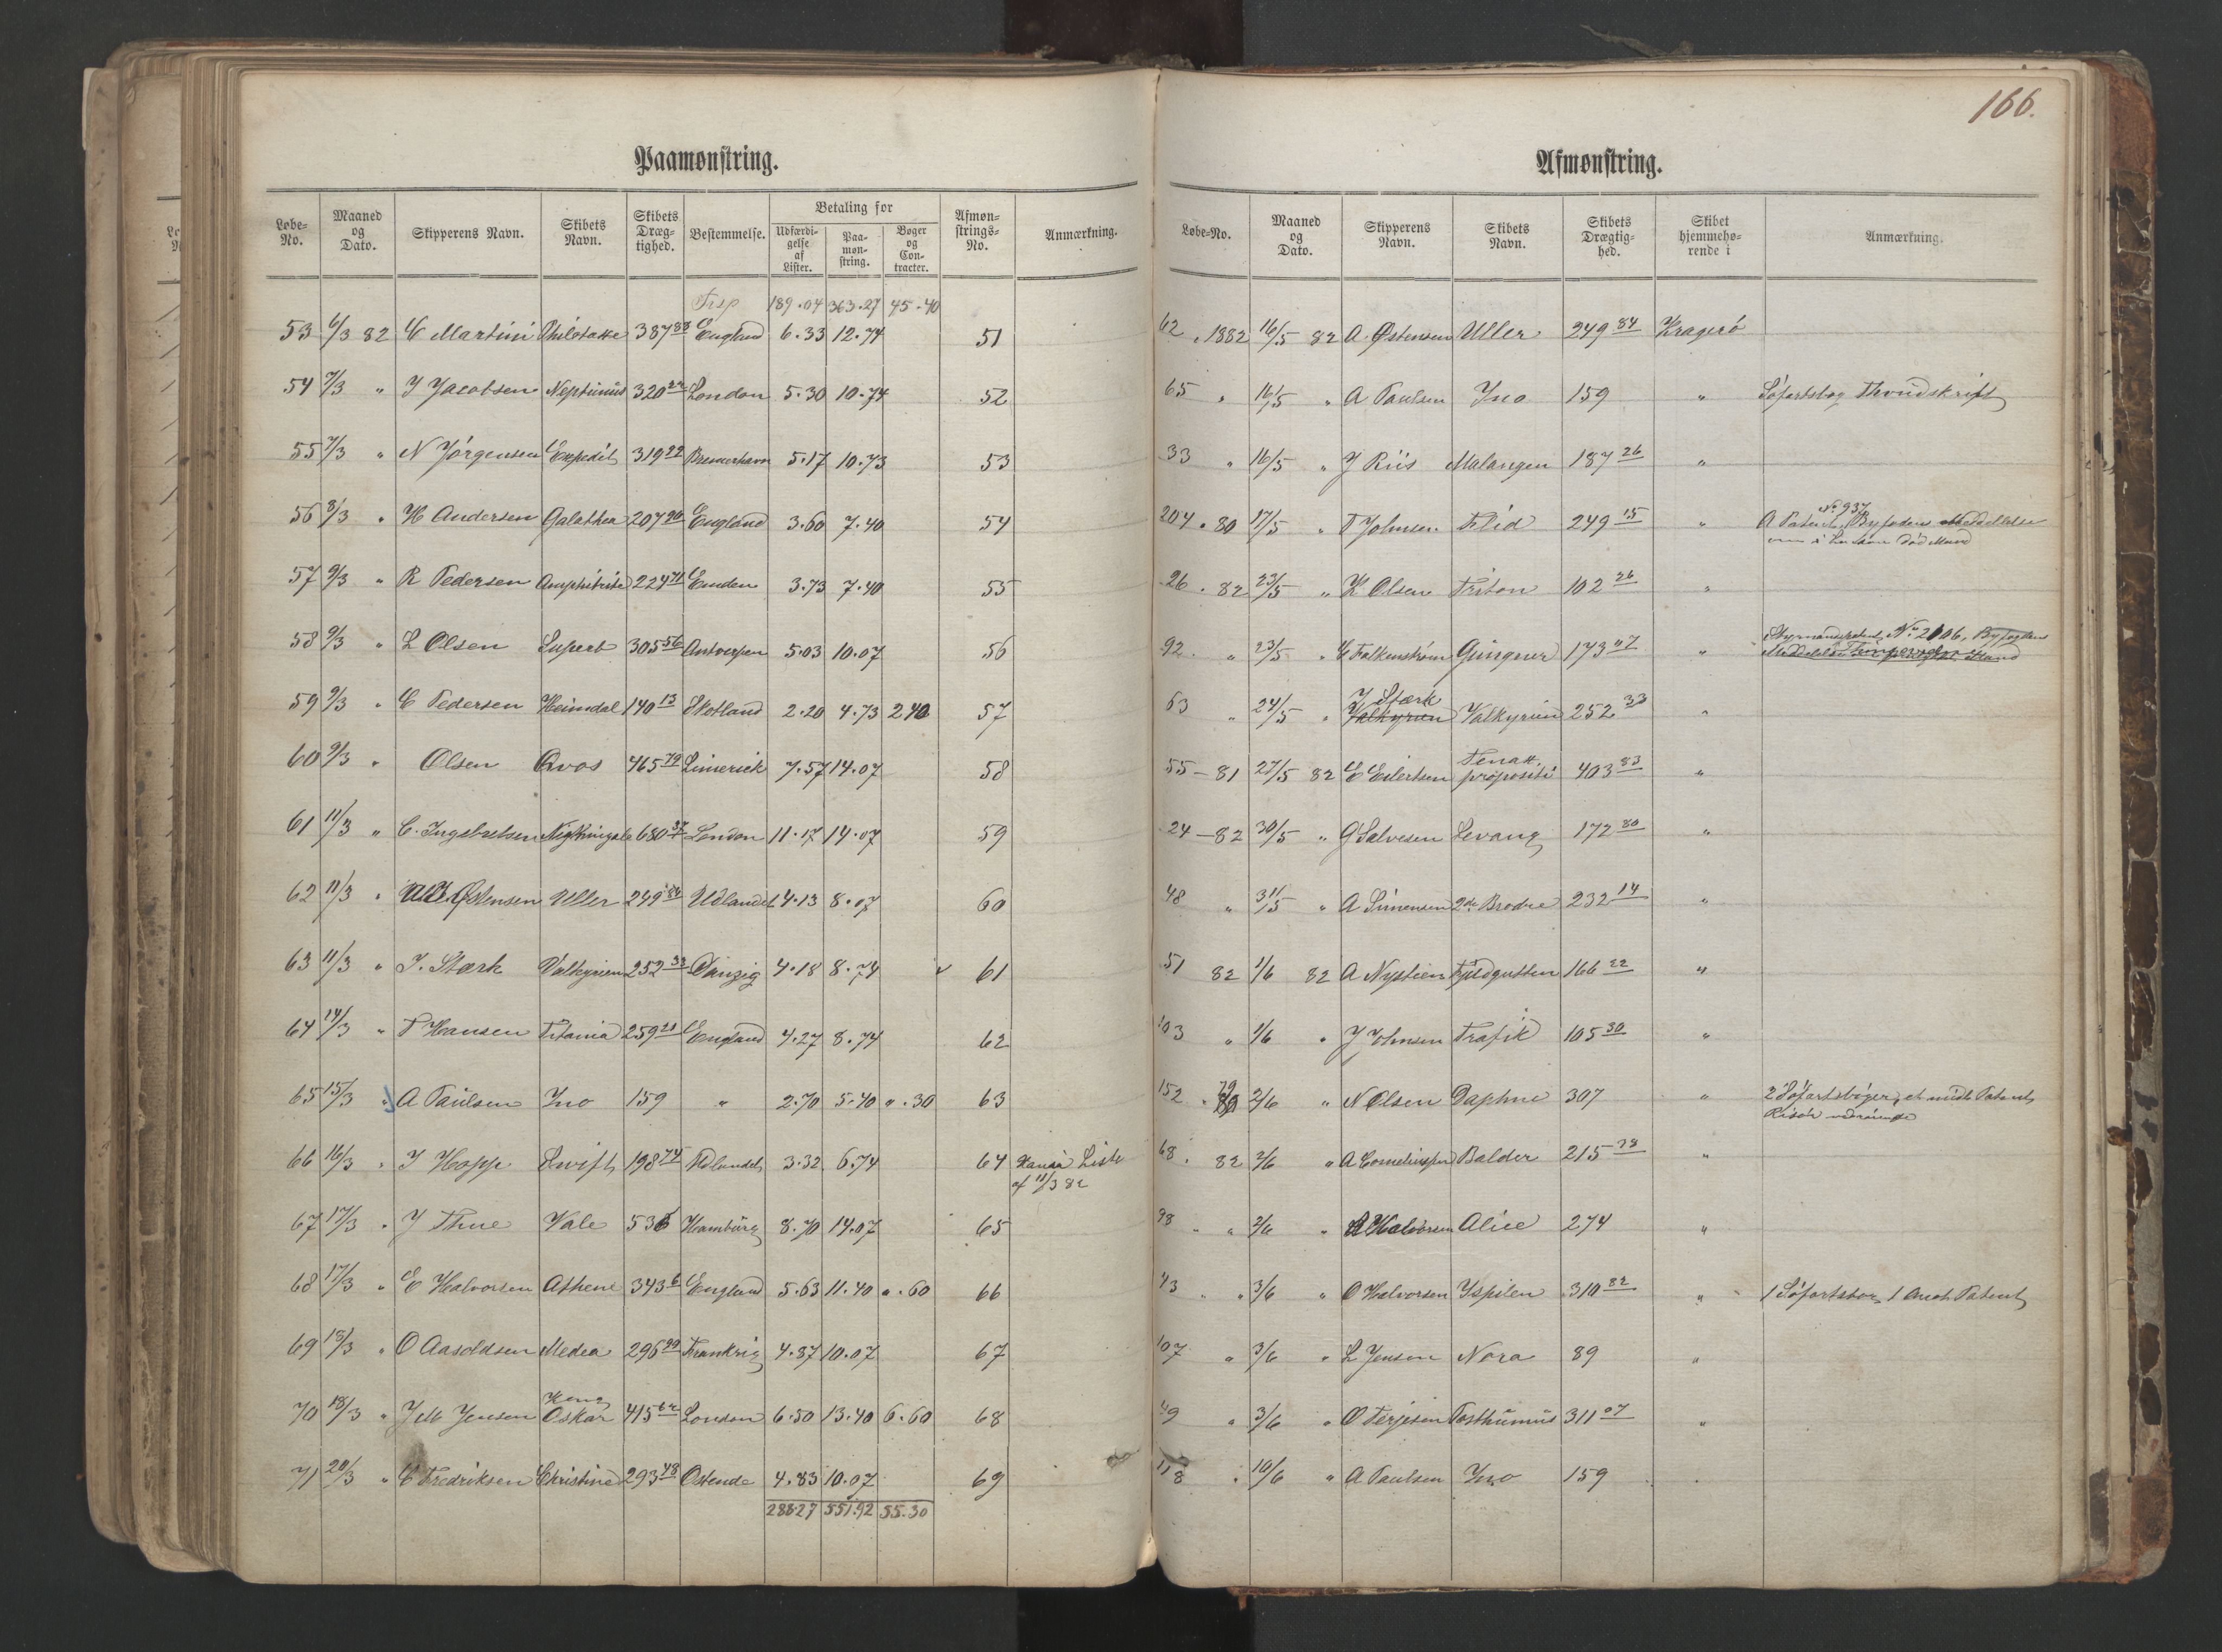 166.
Paamønstring.
Løbe-No. Maaned og Dato. Skipperens Navn. Skibets Navn. Skibets Dræg-tighed. Bestemmelse. Betaling for Udfærdi-gelse af Lister. Paa-møn-string. Bøger og Con-tracter. Afmøn-strings-No. Anmærkning.
Trsp 189.04 363.27 45.40
53 6/3 82 C Martini 387 83 England 6.33 12.74 51
54 7/3 " J Jacobsen Neptunus 320 London 5.30 10.74 52
55 7/3 " N Jörgensen Expedit 319 22 Bremerhavn 5.17 10.73 53
56 8/3 " H Andersen Galathea 207 90 England 3.60 7.40 54
57 9/3 " R Pedersen Amphitrite 224 71 Emden 3.73 7.40 55
58 9/3 " L Olsen Superb 305 56 Antverpen 5.03 10.07 56
59 9/3 " C Pedersen Heimdal 140 13 Skotland 2.20 4.73 2 40 57
60 9/3 " Olsen Avos 465 79 Limerick 7.57 14.07 58
61 11/3 " C. Ingebretsen 680 37 London 11.17 14.07 59
62 11/3 " Østensen Uller 249 84 Udlandet 4.13 8.07 60
63 11/3 " J. Stærk Valkyrien 252 33 Danzig 4.18 8.74 61
64 14/3 " T Hansen Titania 259 21 England 4.27 8.74 62
65 15/3 " A Paulsen Ino 159 " 2.70 5.40 ".30 63
66 16/3 " J Hopp Swift 198 74 Udlandet 3.32 6.74 64 Liste
af 11/3 82
67 17/3 " J Thue Vale 536 Hamburg 8.70 14.07 65
68 17/3 " E Halvorsen Athene 343 6 England 5.63 11.40 ".60 66
69 18/3 " O Aasoldsen Medea 296 90 Frankrig 4.87 10.07 67
Kong
70 18/3 " J M Jensen Oskar 415 62 London 6.50 13.40 6.60 68
71 20/3 " C Fredriksen Christine 293 48 Ostende 4.83 10.07 69
288.27 551.92 55.30
Afmønstring.
Løbe-No. Maaned og Dato. Skipperens Navn. Skibets Navn. Skibets Drægtig-hed. Skibet hjemmehø-rende i Anmærkning.
62 " 1882 16/5 82 A. Østensen Uller 249 84 Kragerö
65 " 16/5 " A Paulsen Ino 159 " Söfartsbog
33 " 16/5 " J Riis Malangen 187 26 "
No 937
204 " 80 17/5 " T Johnsen Flid 249 15 " A Patent
26 " 82 23/5 " K Olsen Triton 102 26 "
92 " 23/5 " C Falkenström Gungner 173 07 " No 2106, Byfogdens
J Stærk
63 " 24/5 " Valkyrien Valkyrien 252 33 "
Tenax
55 - 81 27/5 82 E Eilertsen propositi 403 83 "
24 - 82 30/5 " G Salvesen Levang 172 80 "
48 " 31/5 " A Simensen 2de Brødre 232 14 "
51 82 1/6 82 A Nystien Fjeldgutten 166 22 "
103 " 1/6 " J Johnsen Trafik 105 30 "
152 " 79 2/6 " N Olsen Daphne 307 " 2 Söfartsbøger, et Patent
68 " 82 2/6 " A Corneliussen Balder 215 "
98 " 2/6 " Halvorsen Alice 274 "
43 " 3/6 " O Halvorsen Ispilen 310 82 " 1 Söfartsbog, 1 Patent
107 " 3/6 " L Jensen Nora 89 "
49 " 3/6 " O Terjesen Posthumus 311 07 "
118 " 10/6 " A Paulsen Ino 159